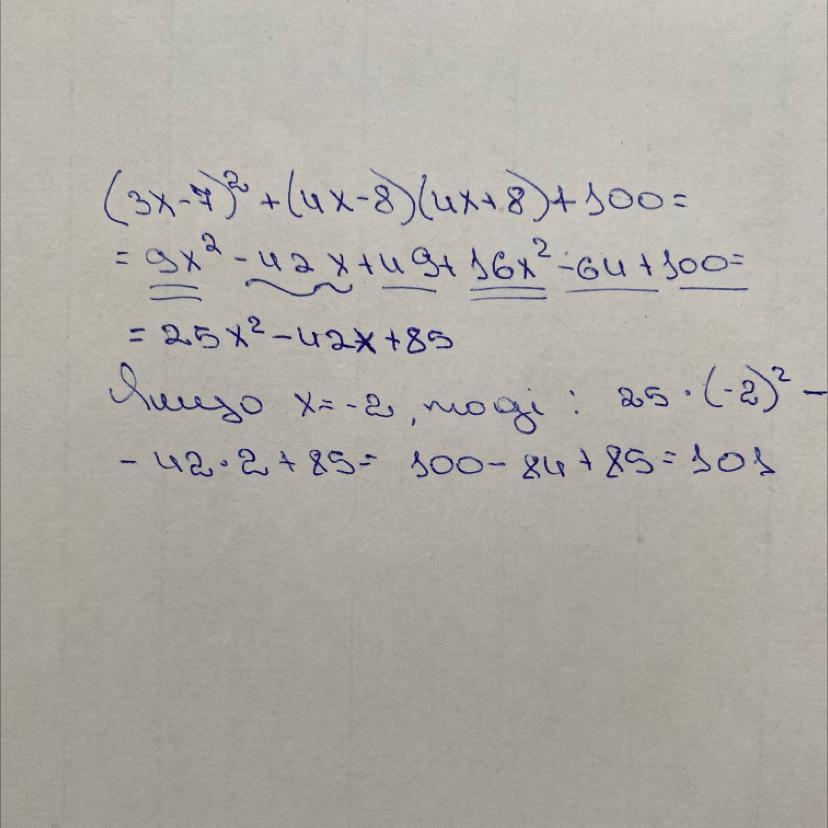 (3x-7)² + (4x-8)(4x+8) + 100 =
= 9x² - 42x + 49 + 16x² - 64 + 100 =
= 25x² - 42x + 85
Якщо x = -2, тоді : 25 · (-2)² -
- 42 · 2 + 85 = 100 - 84 + 85 = 101